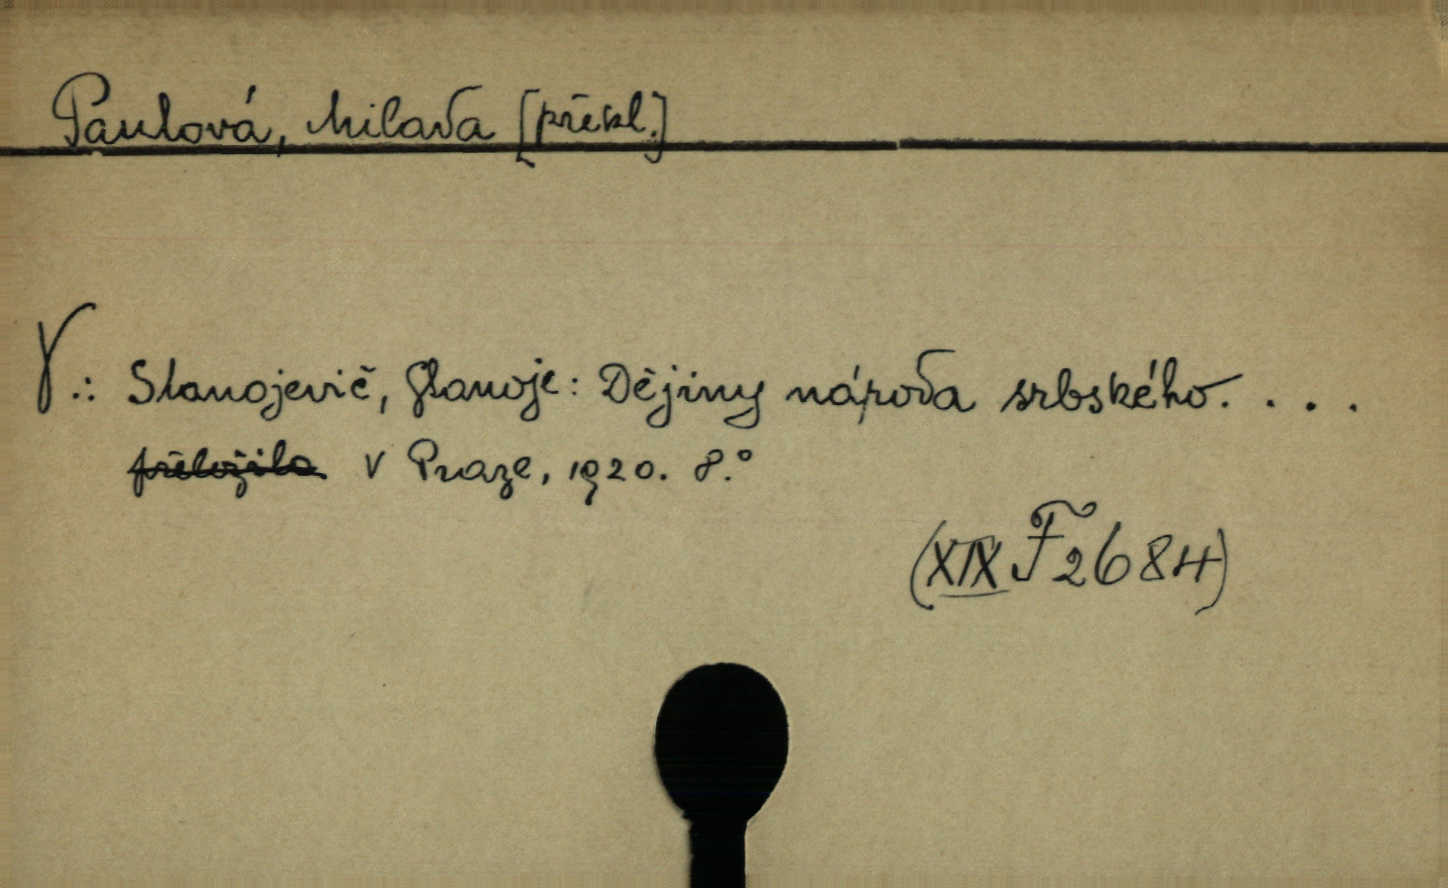 Paulová, Milada [překl.]
V.: Stanojevič, Stanoje: Dějiny národa srbského. . . .
přeložila V Praze, 1920. 8.°
(XIX F 2684)